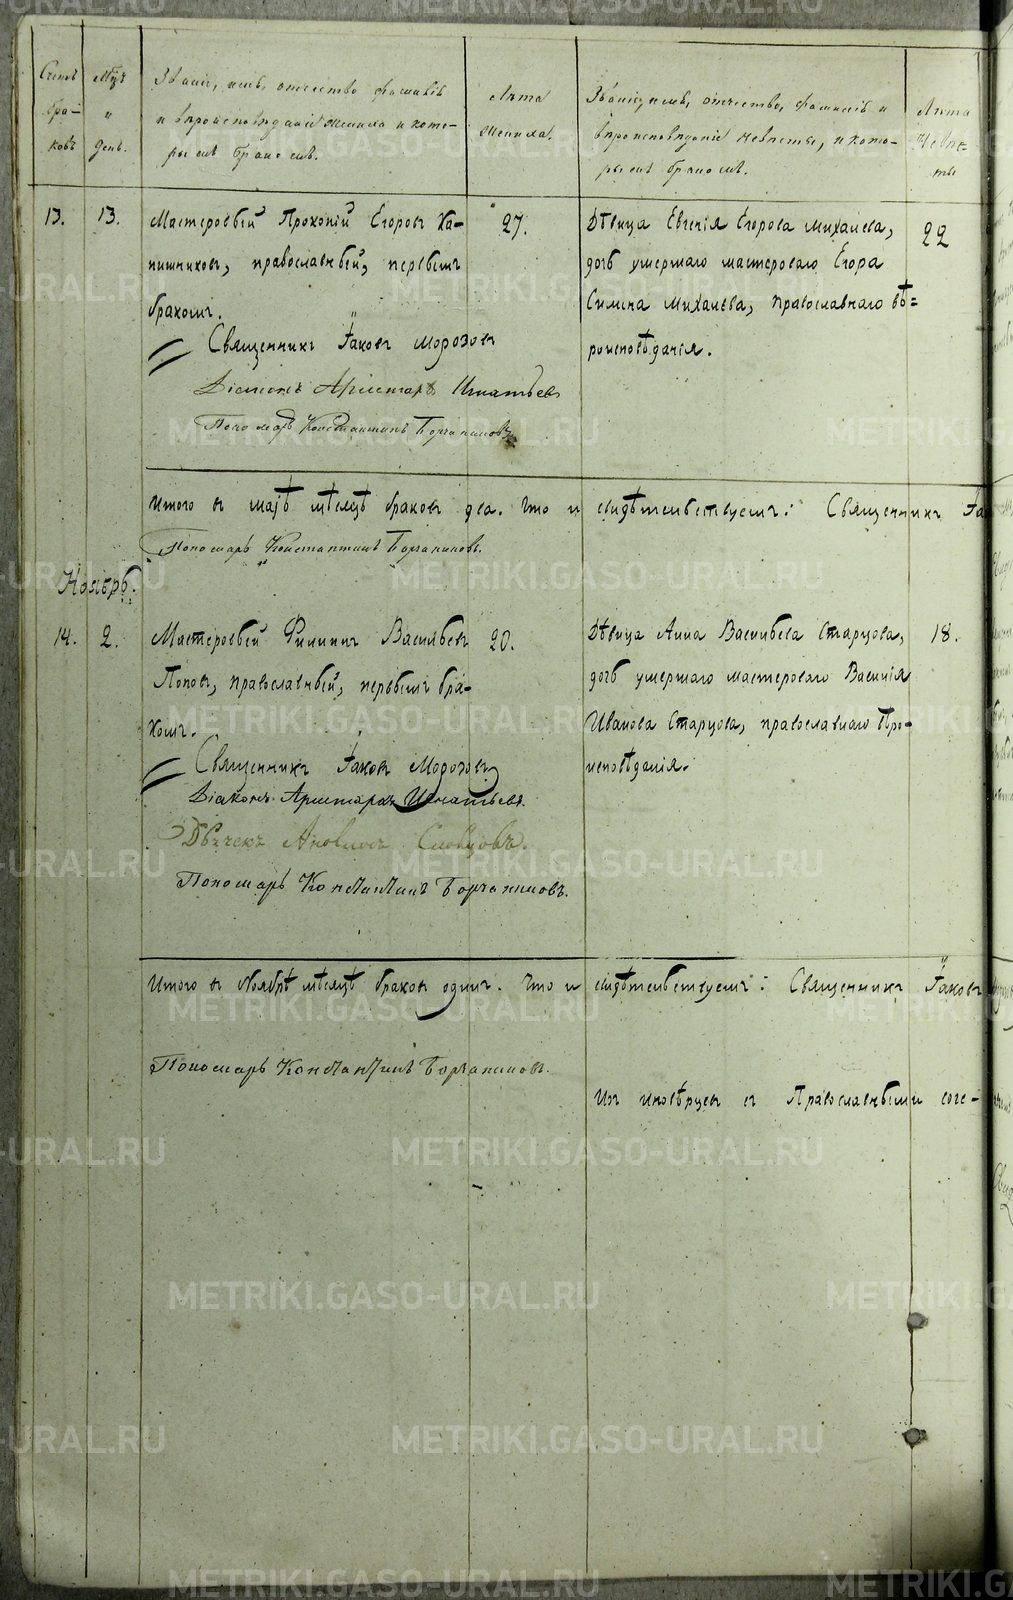 Счетъ браковъ
Мѣсяцъ и день.
Званіе, имя, отчество, фамилія
и вѣроисповѣданіе жениха и кото-
рымъ бракомъ.
Лѣта
жениха.
Званіе, имя, отчество, фамилія и
вѣроисповѣданіе невѣсты, и кото-
рымъ бракомъ.
Лѣта
Невѣс-
ты
13. 13. Мастеровый Прокопій Егоровъ Ка-
пишниковъ, православный, первымъ
бракомъ.
27.
Дѣвица Евгенія Егорова Михалева,
дочь умершаго мастероваго Егора
Симона Михалева, православнаго вѣ=
роисповѣданія.
22
Священникъ Іаковъ Морозовъ
Діаконъ Аристархъ Игнатьевъ
Пономарь Константинъ Борчаниновъ
Итого въ маѣ мѣсяцѣ браковъ два. Что и свидѣтельствуемъ: Священникъ Іа
Пономарь Константинъ Борчаниновъ.
Ноябрь.
14. 2. Мастеровый Филиппъ Васильевъ
Поповъ, православный, первымъ бра-
комъ.
20.
Дѣвица Анна Васильева Старцова,
дочь умершаго мастероваго Василія
Иванова Старцова, православнаго вѣро-
исповѣданія.
18.
Священникъ Іаковъ Морозовъ
Діаконъ Аристархъ Игнатьевъ.
Дьячекъ Словцовъ.
Пономарь Константинъ Борчаниновъ.
Итого въ Ноябрѣ мѣсяцѣ браковъ одинъ. Что и свидѣтельствуемъ: Священникъ Іаковъ
Пономарь Константинъ Борчаниновъ.
Изъ иновѣрцевъ съ Православными соче-
METRIKI.GASO-URAL.RU